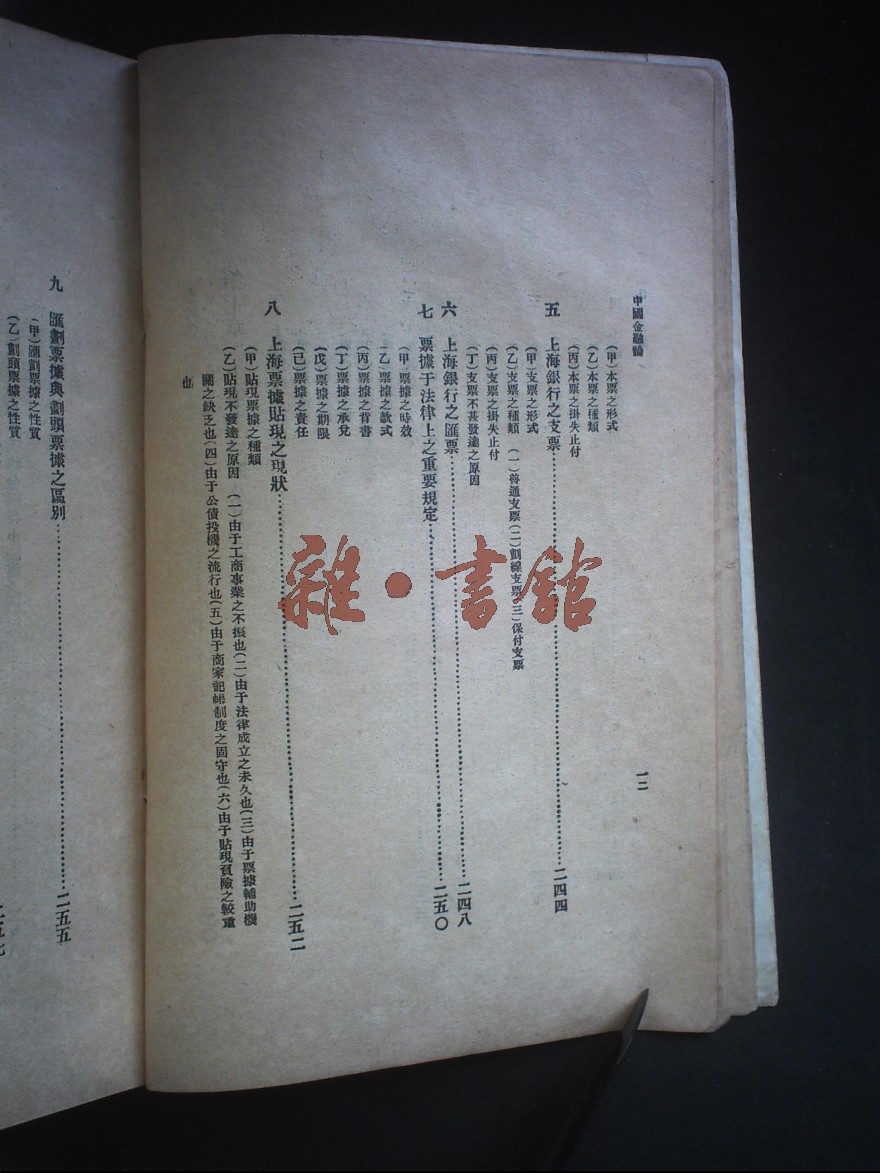 中國金融論
一二
(甲)本票之形式
(乙)本票之種類
(丙)本票之掛失止付
五 上海銀行之支票……二四四
(甲)支票之形式
(乙)支票之種類 (一)普通支票(二)劃線支票(三)保付支票
(丙)支票之掛失止付
(丁)支票不甚發達之原因
六 上海銀行之匯票……二四八
七 票據于法律上之重要規定……二五〇
(甲)票據之時效
(乙)票據之款式
(丙)票據之背書
(丁)票據之承兌
(戊)票據之期限
(己)票據之責任
八 上海票據貼現之現狀……二五二
(甲)貼現票據之種類
(乙)貼現不發達之原因 (一)由于工商事業之不振也(二)由于法律成立之未久也(三)由于票據輔助機
關之缺乏也(四)由于公債投機之流行也(五)由于商家記帳制度之固守也(六)由于貼現負險之較重
也
九 匯劃票據與劃頭票據之區別……二五五
(甲)匯劃票據之性質
(乙)劃頭票據之性質
雜·書館